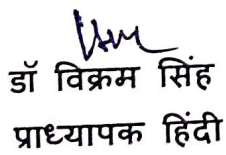 डॉ विक्रम सिंह
प्राध्यापक हिंदी